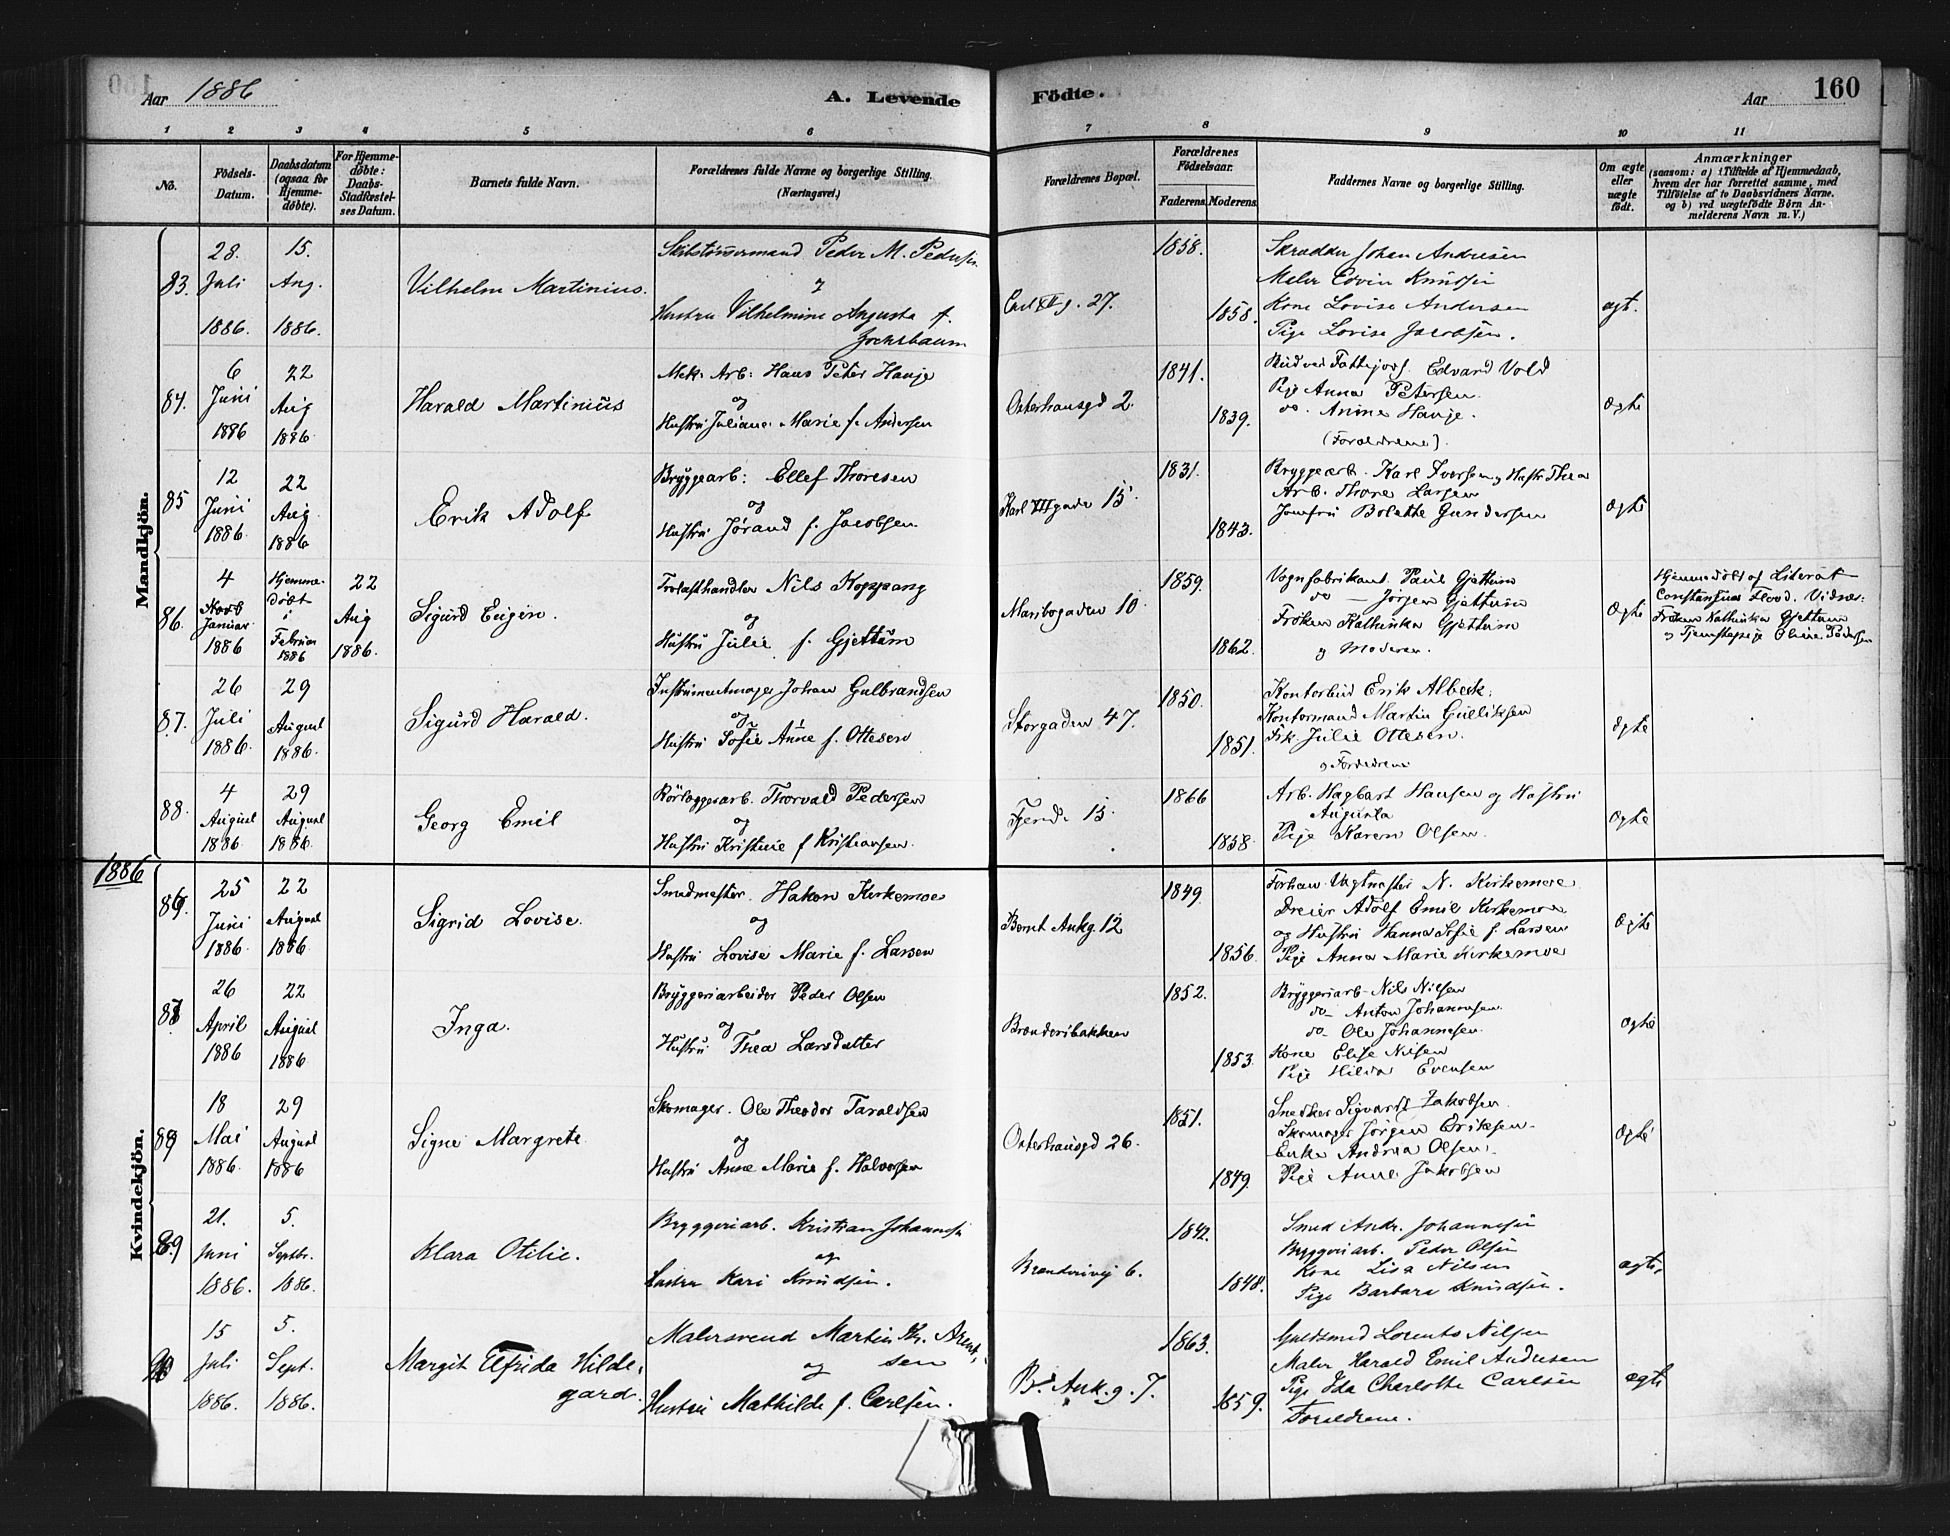 Aar 1886
A. Levende Födte.
Aar
160
1 2 3 4 5 6 7 8 9 10 11
No.
Födsels-Datum.
Daabsdatum (ogsaa for Hjemme-döbte).
For Hjemme-döbte: Daabs-Stadfæstel-ses Datum.
Barnets fulde Navn.
Forældrenes fulde Navne og borgerlige Stilling. (Næringsvei.)
Forældrenes Bopæl.
Forældrenes Födselsaar.
Faderens. Moderens.
Faddernes Navne og borgerlige Stilling.
Om ægte eller uægte födt.
Anmærkninger
(saasom: a) i Tilfælde af Hjemmedaab, hvem der har forrettet samme, med Tilföielse af to Daabsvidners Navne. og b) ved uægtefödte Börn Anmelderens Navn m. V.)
Mandkjön.
83. 28. Juli 1886. 15. Aug. 1886.
Vilhelm Martinius.
Skibstömmermand Peder M. Pedersen
og
Hustru Vilhelmine Augusta f.
Carl XII g. 27.
1858. 1858.
Skrædder Johan Andresen
Maler Edvin Knudsen
Kone Lovise Andersen
Pige Lovise Jacobsen.
ægt.
84. 6 Juni 1886 22 Aug 1886.
Harald Martinius
Mek. Arb: Hans Peter Hauje
og
Hustru Juliane Marie f. Andersen
Osterhausgd 2.
1841. 1839.
Edvard Vold
Pige Anna Petersen.
do. Anine Hauje.
(Forældrene).
Ægte
85 12 Juni 1886. 22 Aug. 1886
Erik Adolf
Bryggearb: Ellef Thoresen
og
Hustru Jørand f. Jacobsen
Karl XII gade 15
1831. 1843.
Bryggearb. Karl Iversen og Hustr. Thea
Arb. Thore Larsen
Jomfru Bolette Gundersen
Ægte
86. 4 Januar 1886 Hjemmedöbt i Februar 1886 22 Aug 1886.
Sigurd Eugen.
Trælasthandler Nils Koppang
og
Hustru Julie f. Gjettum
Maribogaden 10.
1859. 1862.
Vognfabrikant Paul Gjettum
do — Jørgen Gjettum
Frøken Kathinka Gjettum
og Moderen.
Ægte
Hjemmedöbt af Literat
Constantius Flood. Vidner:
Frøken Kathinka Gjettum
og Tjenestepige Oline Pedersen
87. 26 Juli 1886. 29 August 1886.
Sigurd Harald.
Instrumentmager Johan Gulbrandsen
og
Hustru Sofie Anne f. Ottesen
Storgaden 47.
1850. 1851.
Kontorbud Erik Albeck.
Kontormand Martin Gulliksen
Frk. Julie Ottesen.
og Forældrene
Ægte
88. 4 August 1886. 29 August 1886.
Georg Emil
Rörlæggerarb. Thorvald Pedersen
og
Hustru Kristine f Kristiansen.
15.
1866 1858.
Arb. Hagbart Hansen og Hustru
Augusta
Pige Karen Olsen.
Ægte
1886
Kvindekjön.
86. 25 Juni 1886. 22 August 1886
Sigrid Lovise.
Smedmester. Hakon Kirkemoe
og
Hustru Lovise Marie f. Larsen
Bernt Ankg. 12
1849. 1856.
Forhenv. Vagtmester N. Kirkemoe
Dreier Adolf Emil Kirkemoe
og Hustru Hanna Sofie f. Larsen
Pige Anna Marie Kirkemoe
Ægte
87 26 April 1886 22 August 1886
Inga.
Bryggeriarbeider Peder Olsen
og
Hustru Thea Larsdatter
Brænderibakken
1852. 1853.
Bryggeriarb. Nils Nilsen
do Anton Johannesen.
do Ole Johannesen.
Kone Elise Nilsen
Pige Hilda Evensen
Ægte
18 Mai 1886. 29 August 1886
Signe Margrete
Skomager. Ole Theodor Taraldsen
og
Hustru Anne Marie f. Halvorsen
Osterhausgd 26.
1851. 1849.
Snedker Sigvardt Jakobsen.
Skomager Jörgen Eriksen.
Enke Andrea Olsen.
Pige Anne Jakobsen
Ægte
89 21. Juni 1886. 5. Septbr. 1886.
Klara Otilie.
Bryggeriarb. Kristian Johannesen
og
Hustru Kari Knudsen.
Brænderivej 6.
1842. 1848.
Smed Andr. Johannesen
Bryggeriarb. Peder Olsen
Kone Lisa Nilsen
Pige Barbara Knudsen.
ægte
90 15 Juli 1886. 5. Sept. 1886.
Margit Elfrida Hilde-
gard.
Malersvend Martin Kr. Arent-
og sen
Hustru Mathilde f. Carlsen.
B. Ank. g. 7.
1863. 1859.
Guldsmed Lorents Nilsen
Maler Harald Emil Andresen
Pige Ida Charlotte Carlsen
Forældrene.
ægte